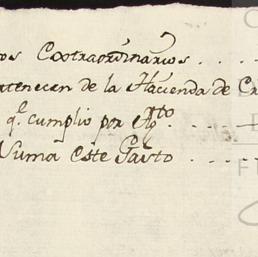 os Extraordinarios . . . .
rtenecen de la Hacienda de Cr
q.e cumplio por Ag.to . . . .
Numa este Gasto . . . .